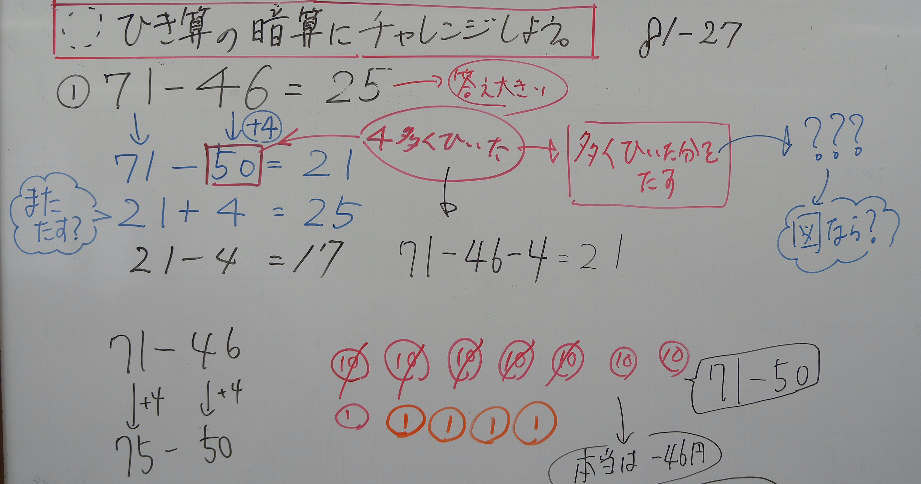 ひき算の暗算にチャレンジしよう。
81-27
① 71-46=25 → 答え大きい
+4 4多くひいた 多くひいた分をたす ???
71-50=21
またたす? 21+4=25 図なら?
21-4=17 71-46-4=21
71-46
+4 +4
75-50
10 10 10 10 10 10 10 71-50
1 1 1 1 1
本当は -46円